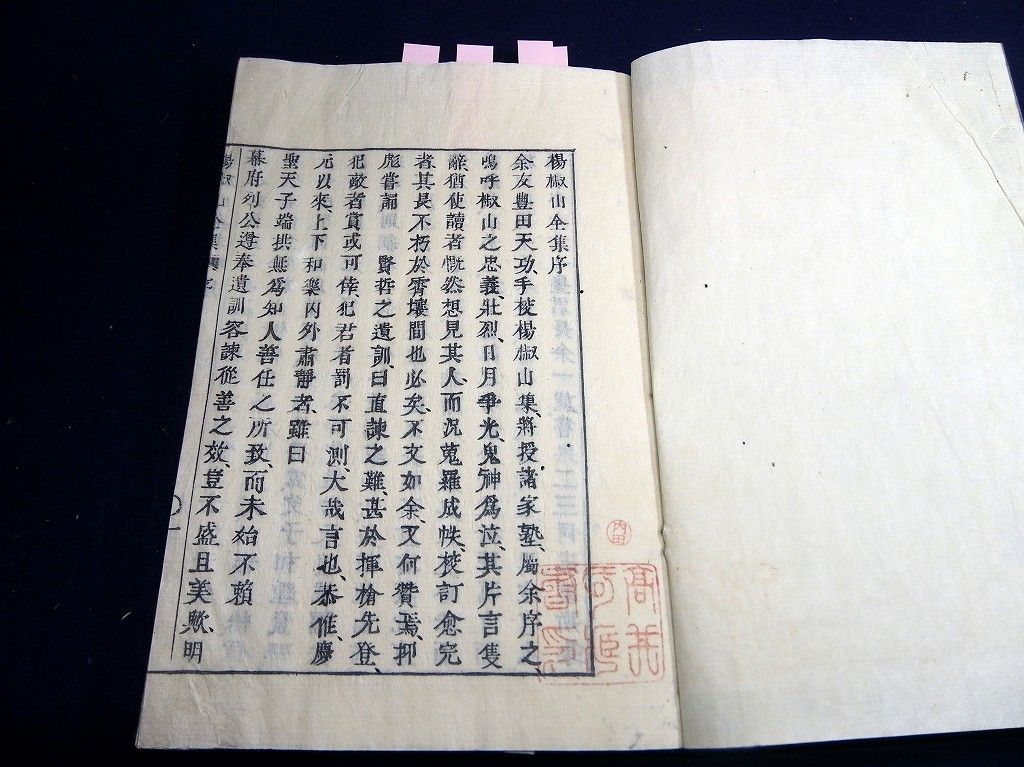 楊椒山全集序
余友豊田天功、手校楊椒山集、將授諸家塾、屬余序之、
嗚呼椒山之忠義壯烈、日月爭光、鬼神爲泣、其片言隻
辭、猶使讀者慨然想見其人、而況蒐羅成帙、校訂愈完
者、其長不朽於霄壤間也必矣、不文如余、又何贊焉、抑
彪嘗誦賢哲之遺訓、曰直諫之難、甚於揮槍先登、
犯敵者賞或可倖、犯君者罰不可測、大哉言也、恭惟慶
元以來、上下和樂、內外肅靜者、雖曰
聖天子端拱無爲、知人善任之所致、而未始不賴
幕府列公遵奉遺訓、容諫從善之效、豈不盛且美歟、明
楊椒山全集序
一
內田